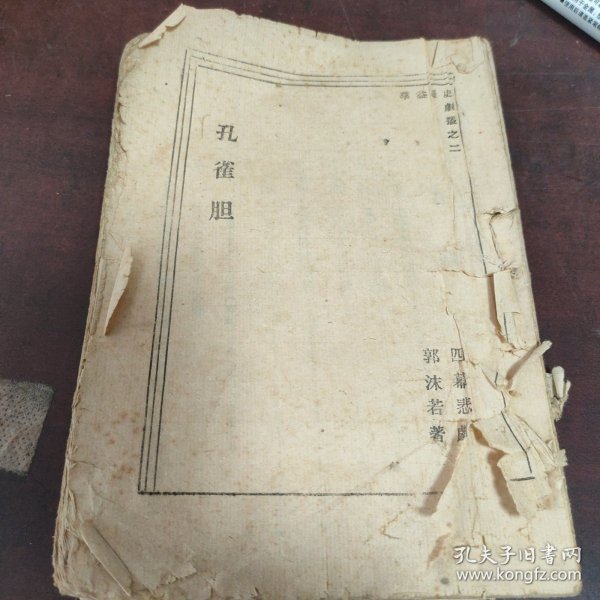 史劇叢之二
孔雀胆
四幕悲劇
郭沫若著
孔夫子旧书网
www.kongfz.com